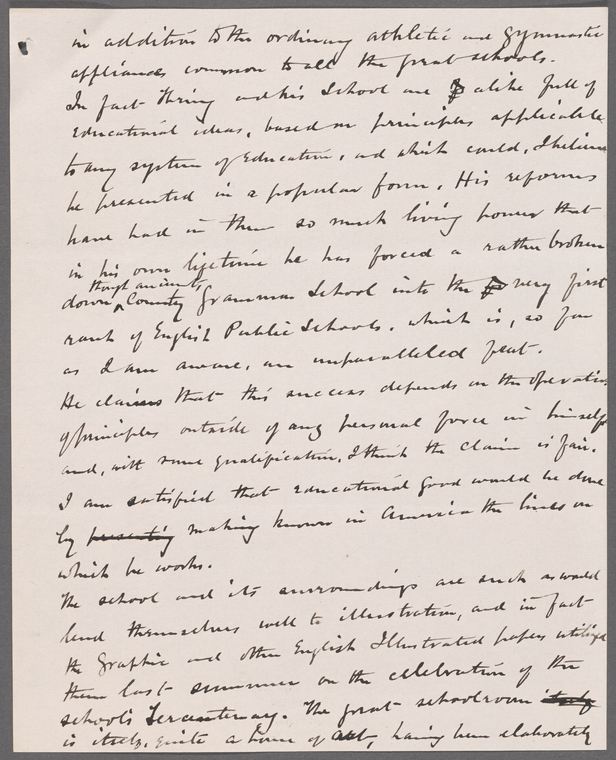 in addition to the ordinary athletic and gymnastic
appliances common to all the great schools.
In fact Thring and his School are alike full of
educational ideas, based on principles applicable
to any system of Education, and which could, I believe
be presented in a popular form. His reforms
have had in them so much living power that
in his own lifetime he has forced a rather broken
though ancient
down County Grammar School into the very first
rank of English Public Schools. which is, so far
as I am aware, an unparalleled feat.
He claims that this success depends on the operation
of principles outside of any personal force in himself
and, with some qualification, I think the claim is fair.
I am satisfied that educational good would be done
by presenting making known in America the lines on
which he works.
The school and its surroundings are such as would
lend themselves well to illustration, and in fact
the Graphic and other English Illustrated papers utilized
them last summer on the celebration of the
school's Tercentenary. The great schoolroom itself
is itself, quite a home of art, having been elaborately